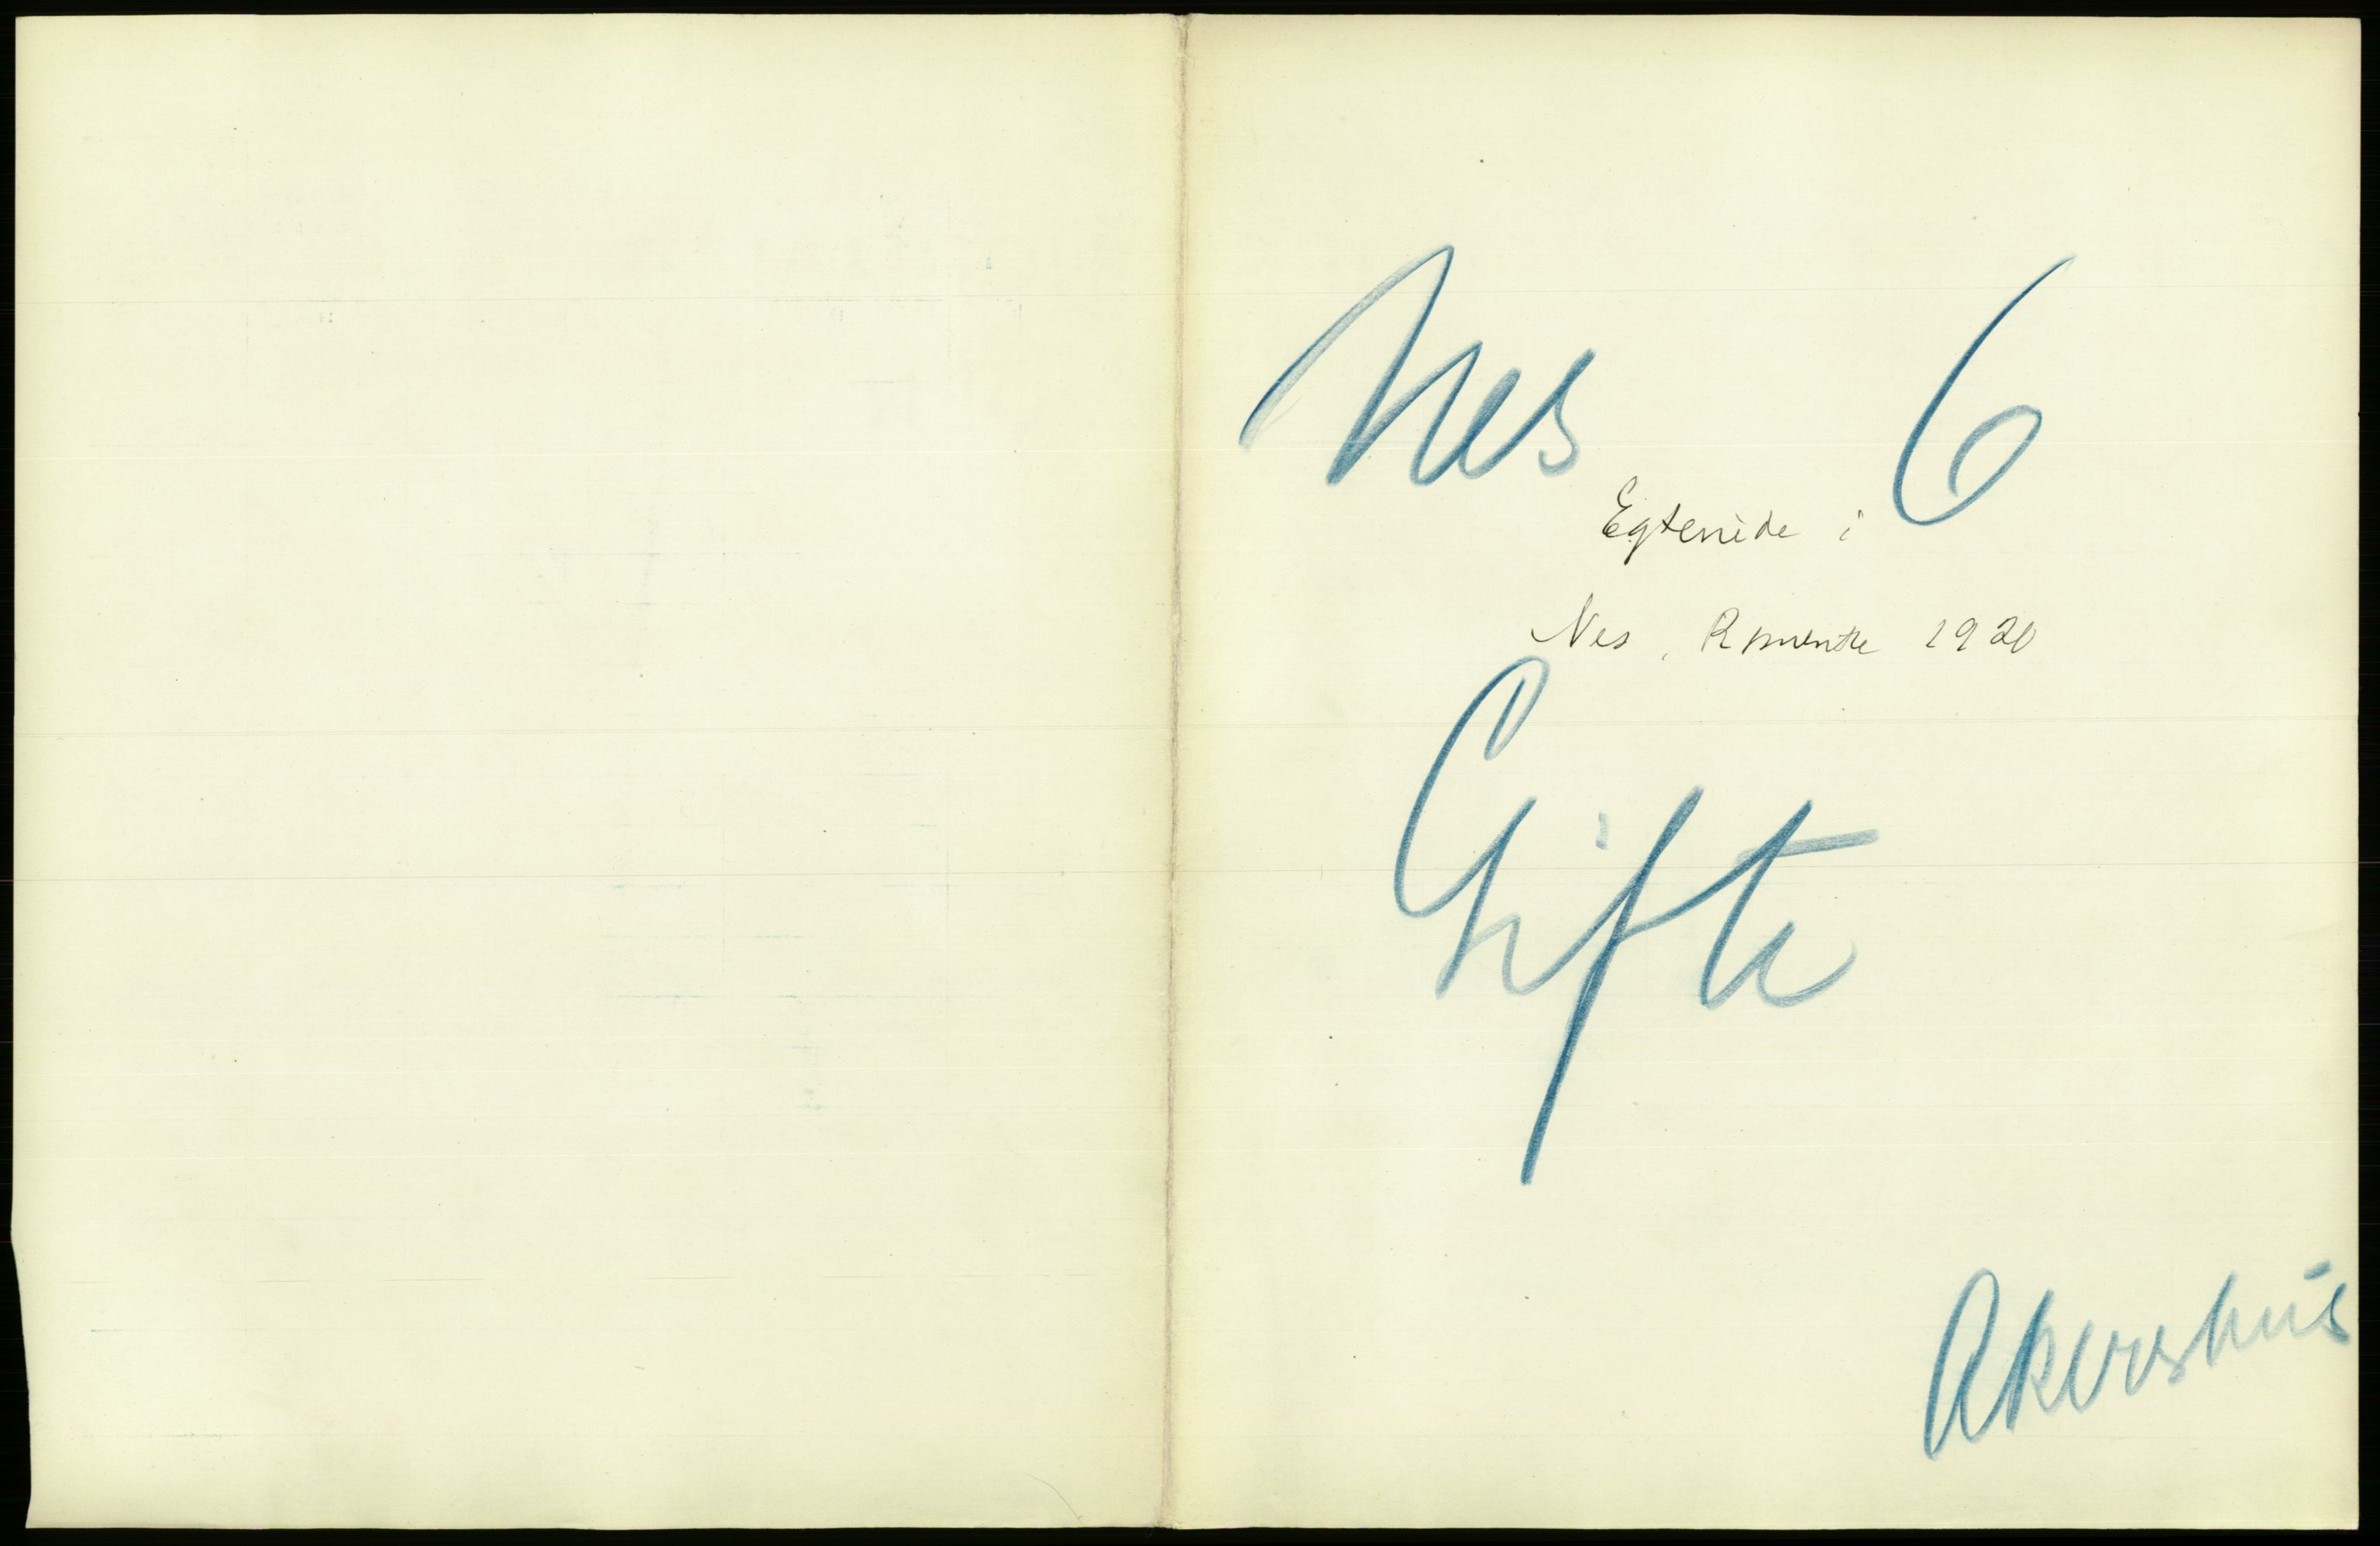 Nes 6
Egteviede i
Nes, Romerike 1920
Gifte
Akershus